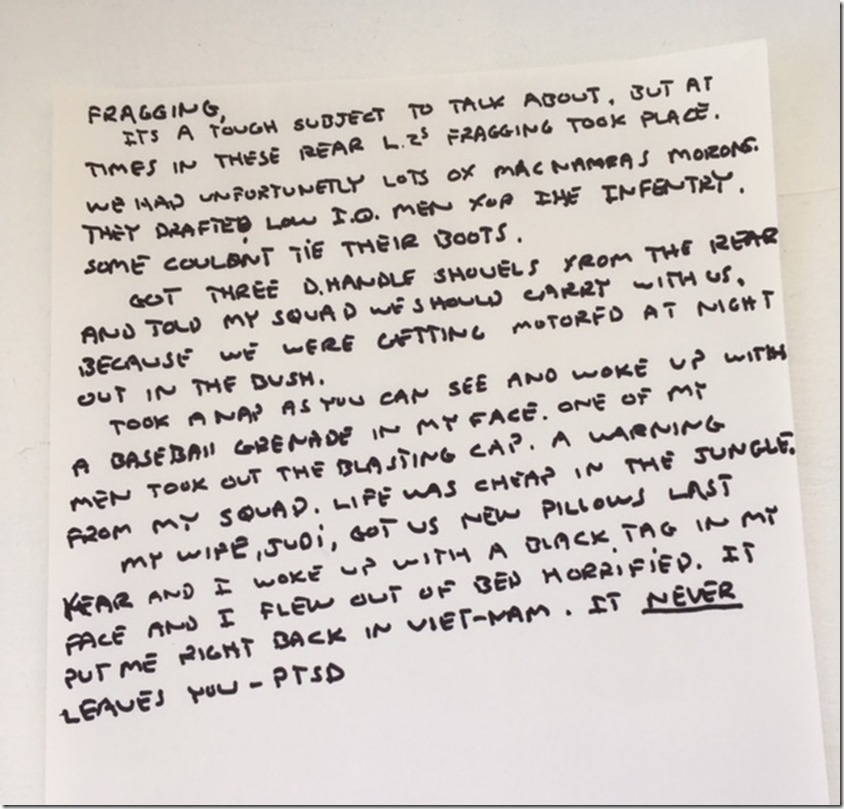 FRAGGING,
ITS A TOUGH SUBJECT TO TALK ABOUT, BUT AT
TIMES IN THESE REAR L.Zs FRAGGING TOOK PLACE.
WE HAD UNFORTUNETLY LOTS OX MACNAMRAS MORONS.
THEY DRAFTED LOW I.Q. MEN XOR THE INFENTRY.
SOME COULDNT TIE THEIR BOOTS.
GOT THREE D.HANDLE SHOVELS FROM THE REAR
AND TOLD MY SQUAD WE SHOULD CARRY WITH US.
BECAUSE WE WERE GETTING MOTORED AT NIGHT
OUT IN THE BUSH.
TOOK A NAP AS YOU CAN SEE AND WOKE UP WITH
A BASEBAll GRENADE IN MY FACE. ONE OF MY
MEN TOOK OUT THE BLASTING CAP. A WARNING
FROM MY SQUAD. LIFE WAS CHEAP IN THE JUNGLE.
MY WIFE, JUDi, GOT US NEW PILLOWS LAST
YEAR AND I WOKE UP WITH A BLACK TAG IN MY
FACE AND I FLEW OUT OF BED HORRiFiED. IT
PUT ME RIGHT BACK IN VIET-NAM. IT NEVER
LEAVES YOU - PTSD